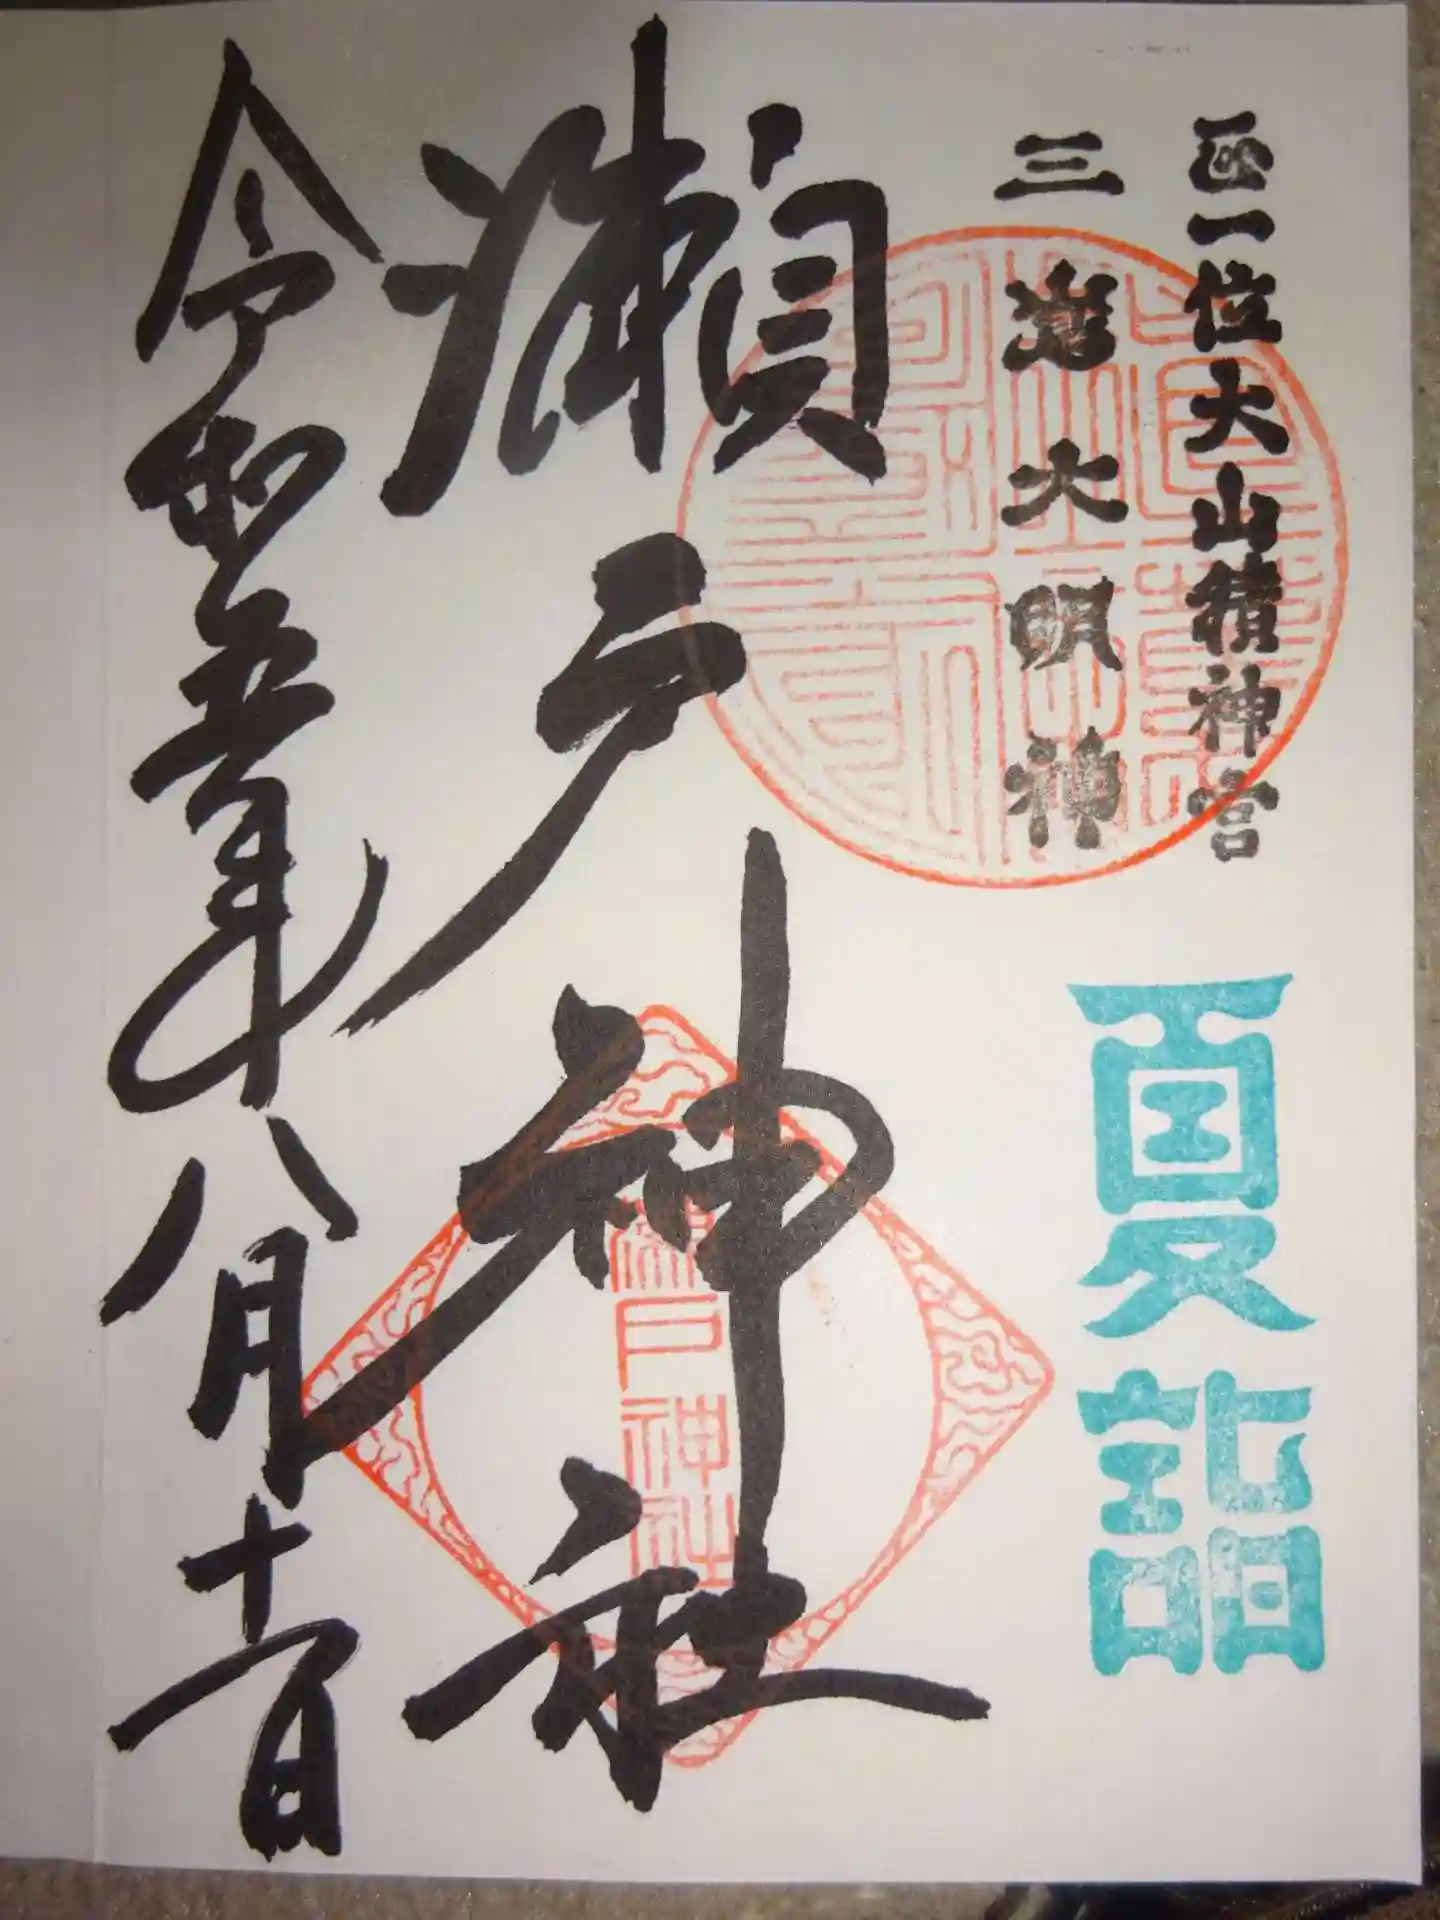 正一位大山積神宮
三嶌大明神
夏詣
瀬戸神社
瀬戸神社
令和五年八月十一日